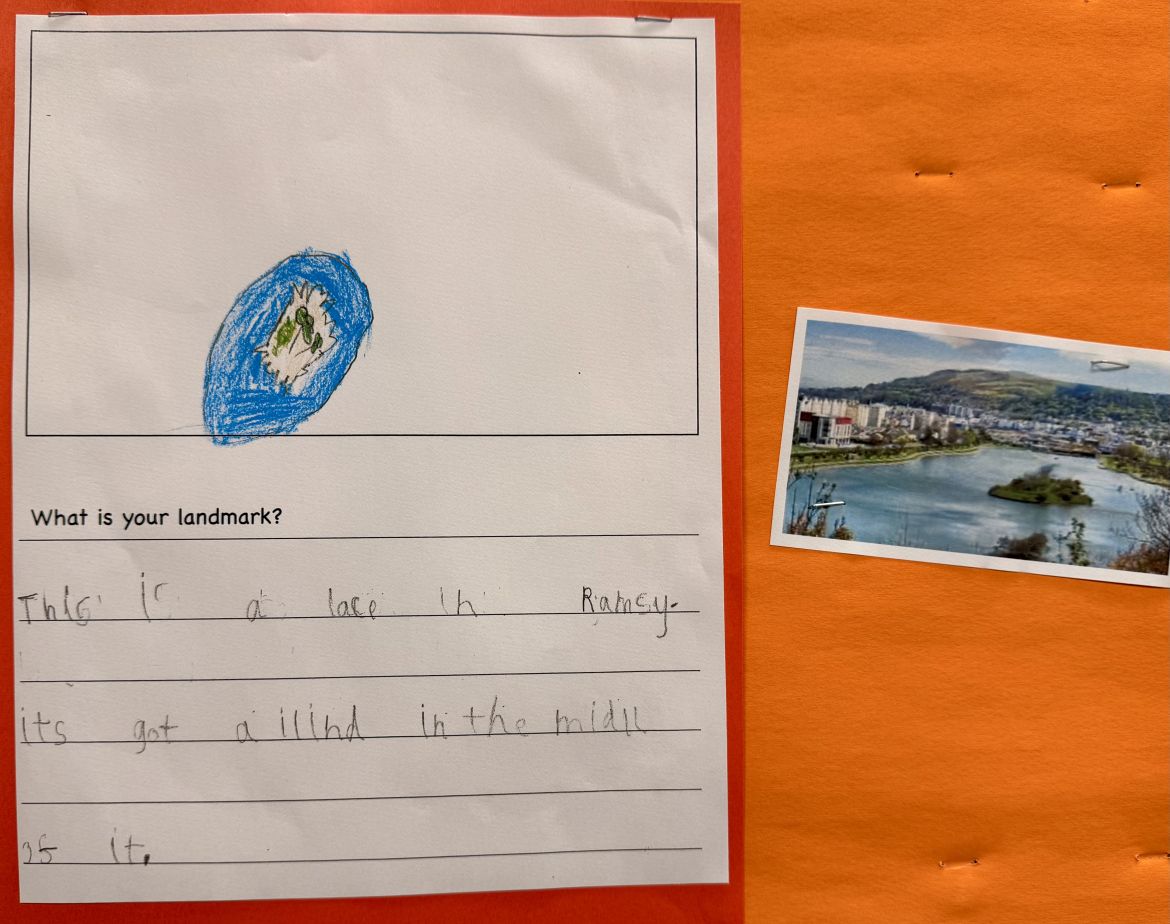 What is your landmark?
This is a lace in Ramsy.
its got a ilind in the midll
of it.